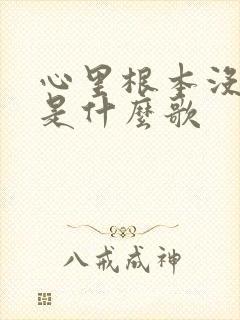 心里根本没
是什麼歌
八戒成神